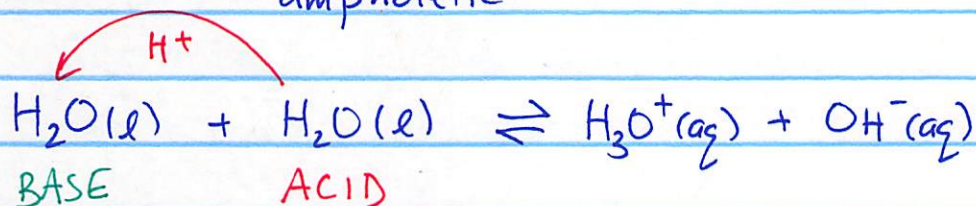 H⁺
H₂O(l) + H₂O(l) ⇌ H₃O⁺(aq) + OH⁻(aq)
BASE ACID